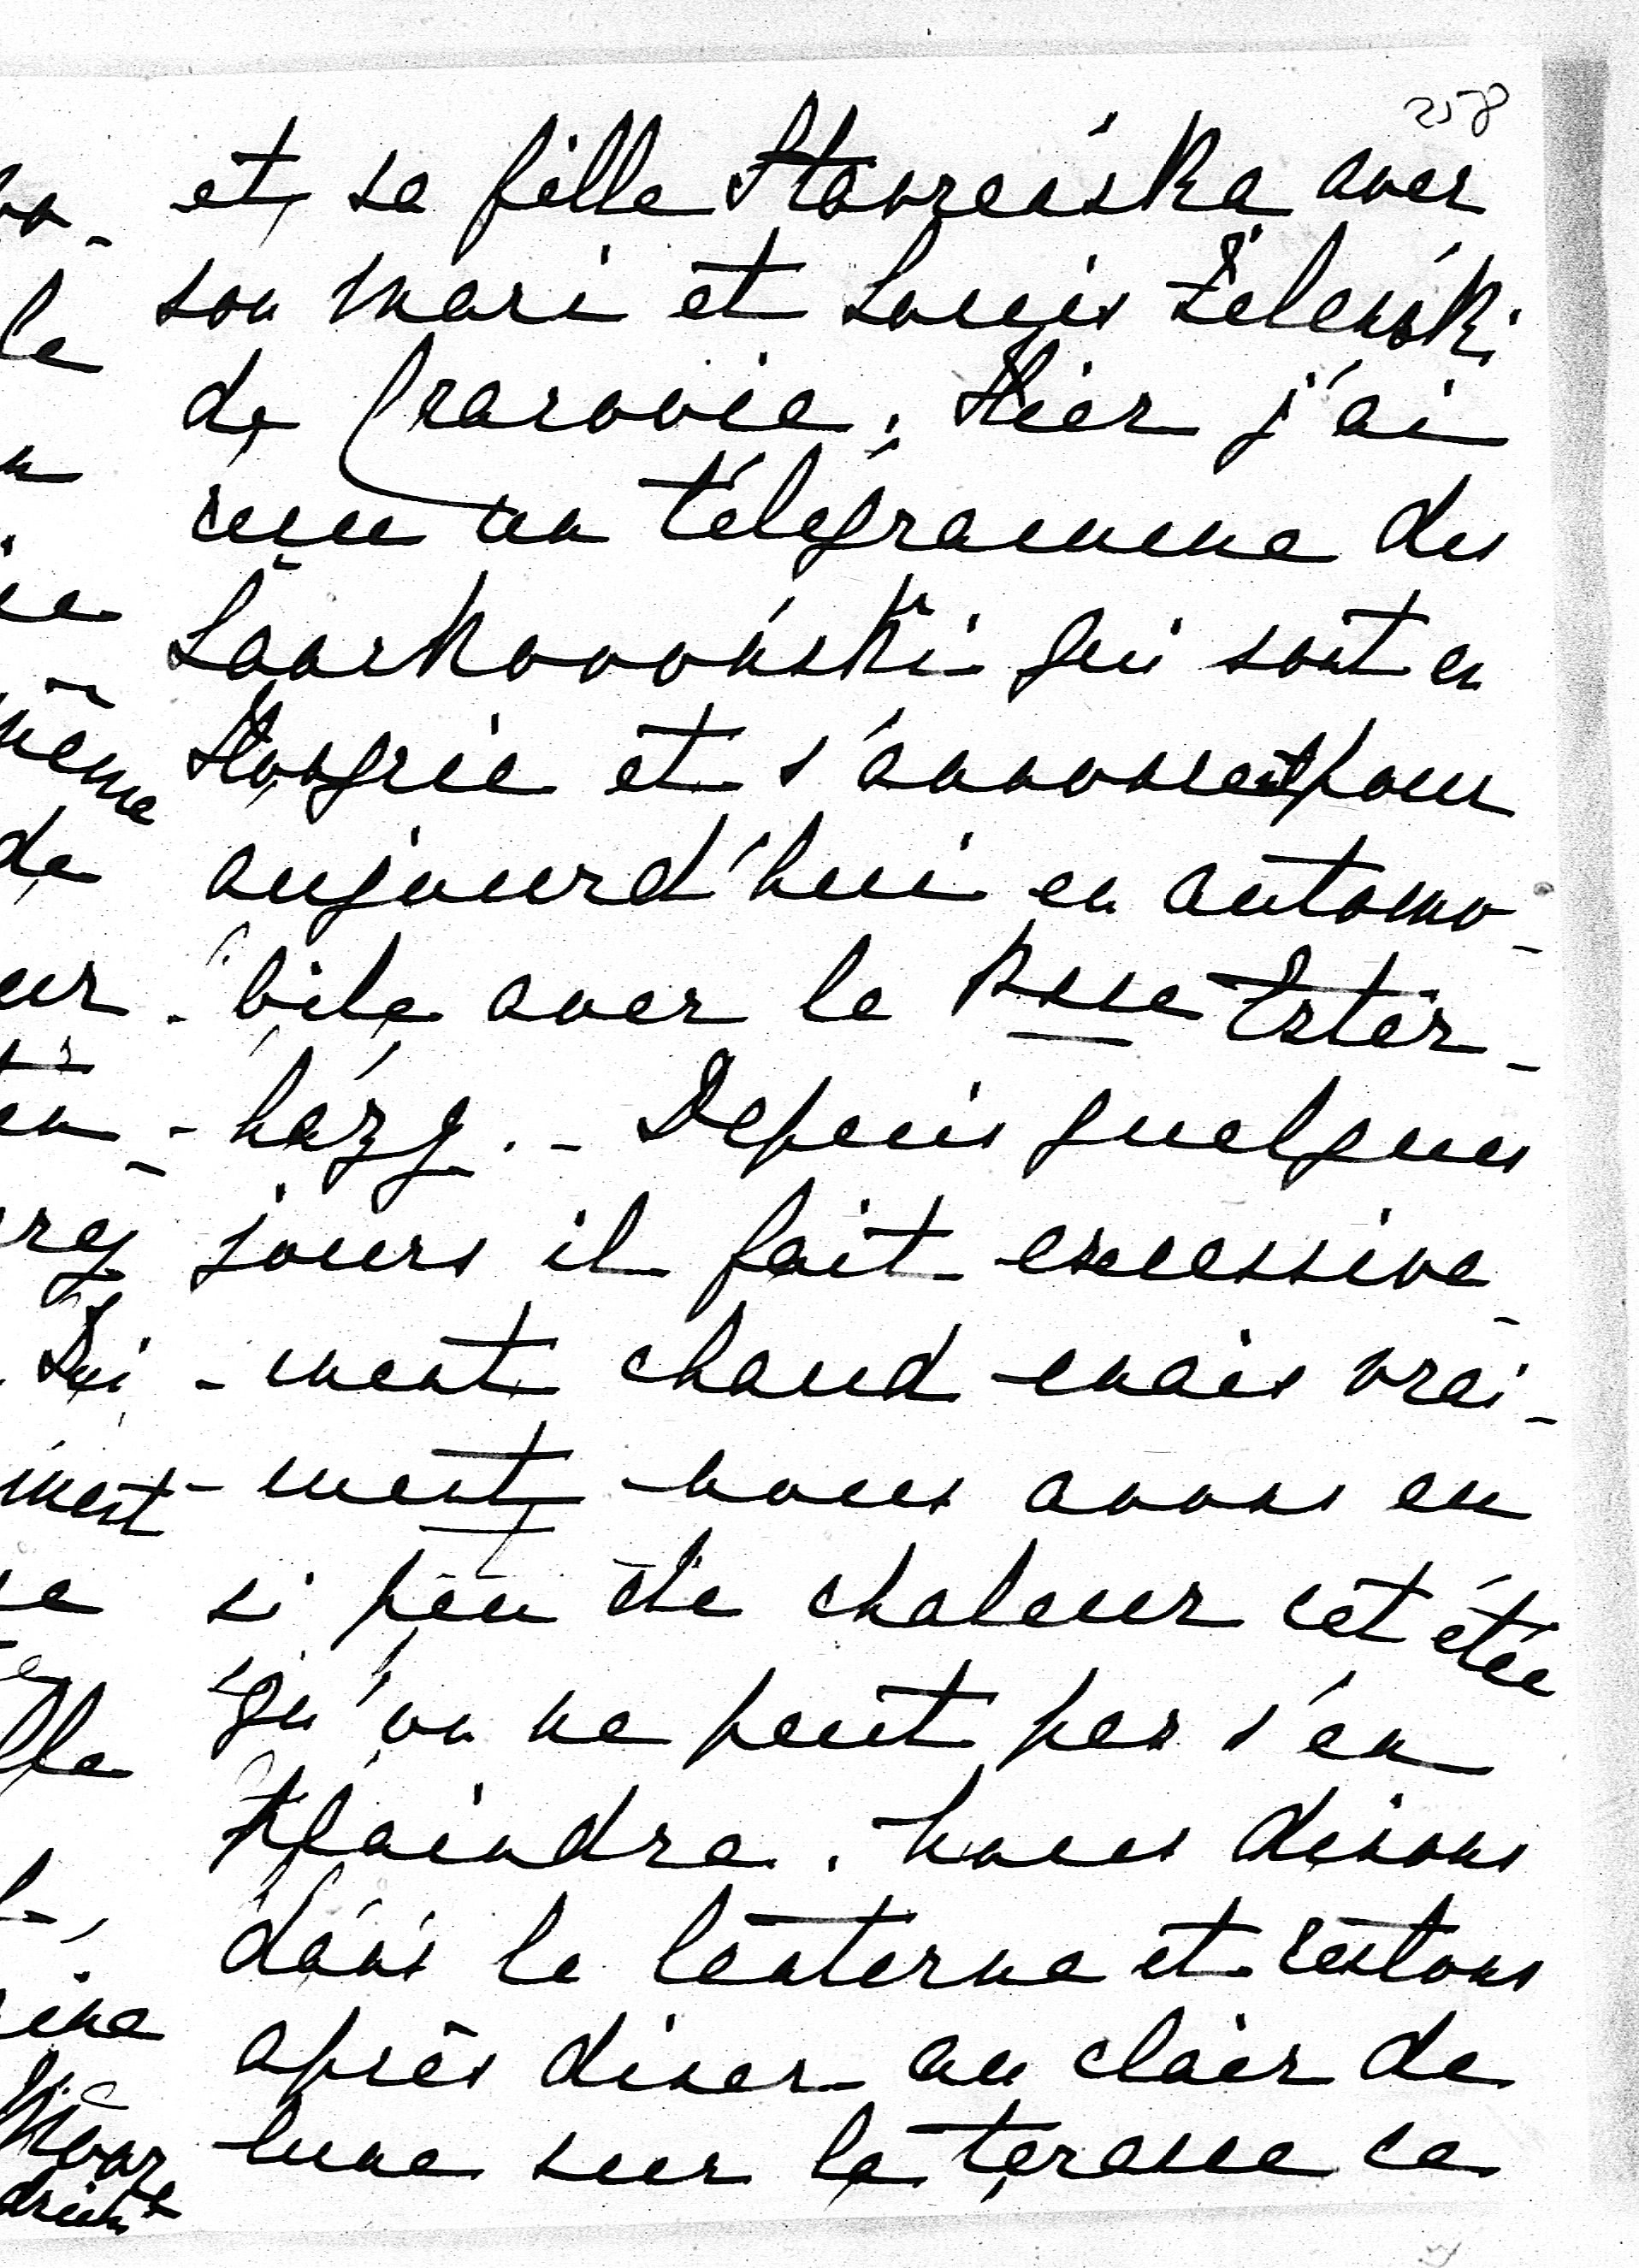 258
et sa fille Starzeńska avec
son mari et Louis Żeleński
de Cracovie. Hier j'ai
reçu un télégramme des
qui sont en
Hongrie et s'annoncent pour
aujourd'hui en automo-
bile avec le Pce Ester-
-házy. - Depuis quelques
jours il fait excessive-
-ment chaud mais vrai-
-ment nous avons eu
si peu de chaleur cet étée
qu'on ne peut pas s'en
plaindre. Nous dinons
dans la lanterne et restons
après diner au clair de
lune sur la terasse ce